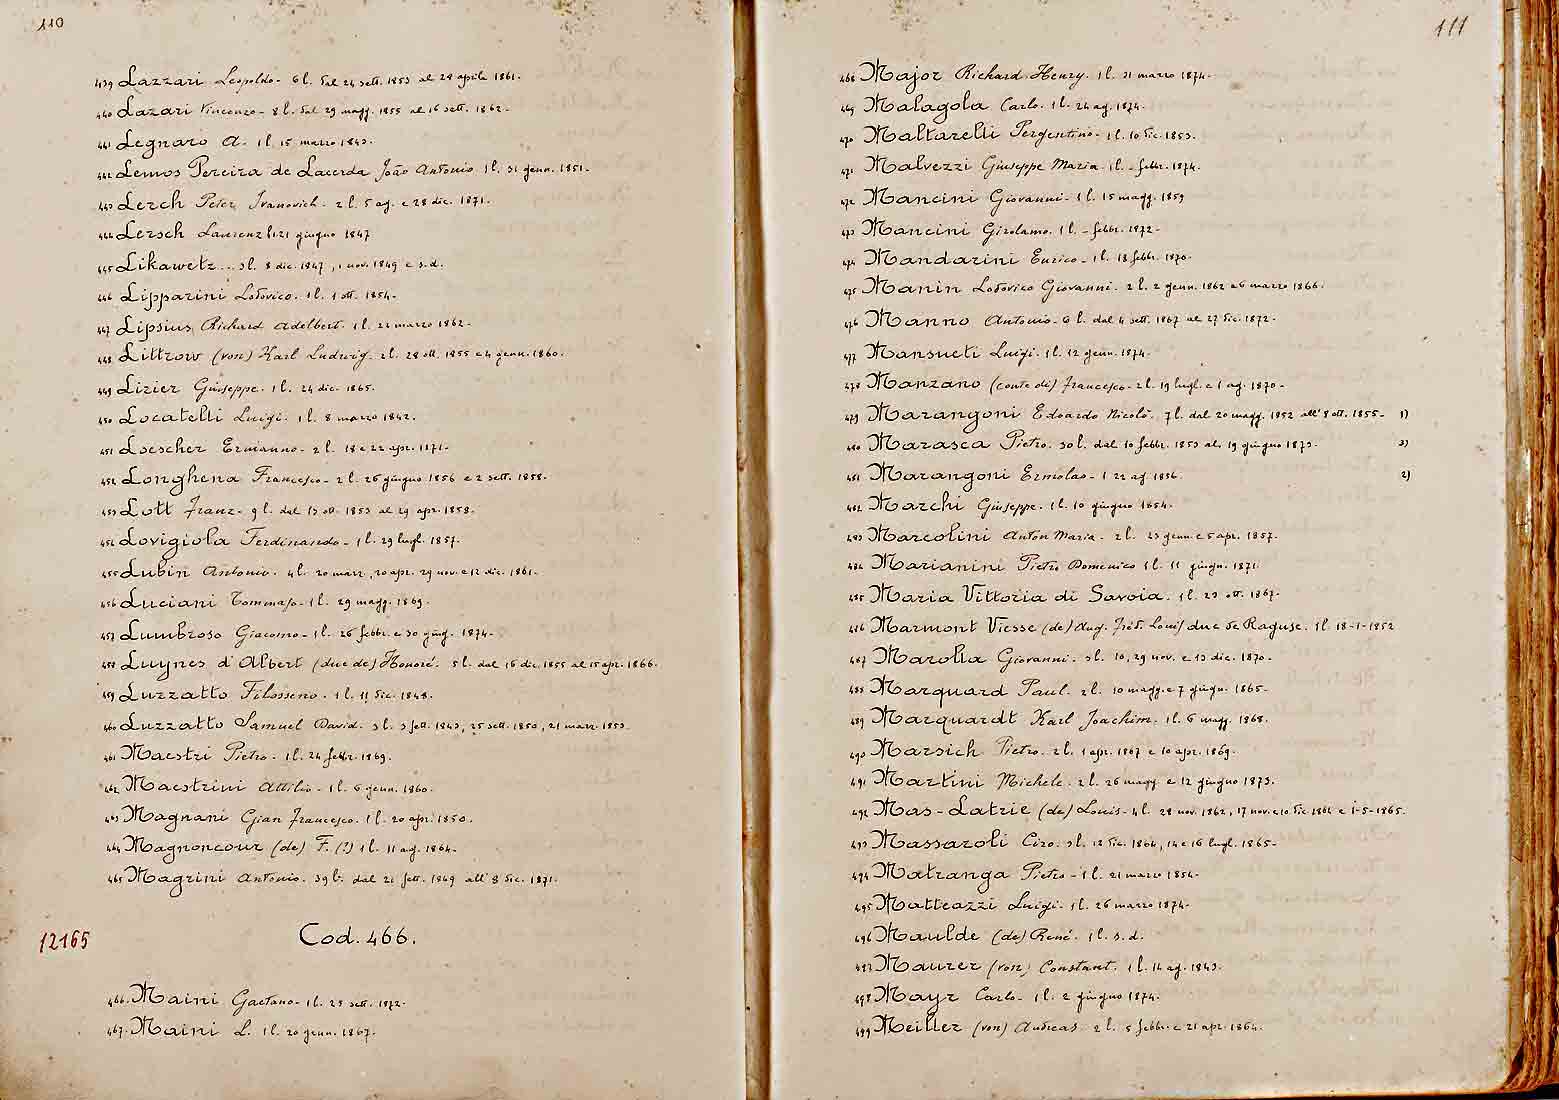 110
439 Lazzari Leopoldo - 6 l. dal 24 sett. 1853 al 28 aprile 1861.
440 Lazari Vincenzo - 8 l. dal 29 magg. 1855 al 16 sett. 1862.
441 Legnaro A. 1 l. 15 marzo 1843.
442 Lemos Pereira de Lacerda João Antonio. 1 l. 31 genn. 1851.
443 Lerch Peter Ivanovich. 2 l. 5 ag. e 28 dic. 1871.
444 Lersch Laurenz 1 l. 21 giugno 1847
445 Likawetz... 3 l. 8 dic. 1847, 1 nov. 1849 e s.d.
446 Lipparini Lodovico. 1 l. 1 ott. 1854.
447 Lipsius Richard Adelbert. 1 l. 22 marzo 1862.
448 Littrow (von) Karl Ludwig. 2 l. 28 ott. 1855 e 4 genn. 1860.
449 Lizier Giuseppe. 1 l. 24 dic. 1865.
450 Locatelli Luigi. 1 l. 8 marzo 1842.
451 Loescher Ermanno - 2 l. 18 e 22 apr. 1171.
452 Longhena Francesco - 2 l. 26 giugno 1856 e 2 sett. 1858.
453 Lott Franz - 9 l. dal 13 ott. 1853 al 29 apr. 1858.
454 Lovigiola Ferdinando - 1 l. 29 lugl. 1857.
455 Lubin Antonio. 4 l. 20 marz., 20 apr. 29 nov. e 12 dic. 1861.
456 Luciani Tommaso - 1 l. 29 magg. 1869.
457 Lumbroso Giacomo - 1 l. 26 febbr. e 30 giug. 1874.
458 Luynes d'Albert (duc de) Honoré. 5 l. dal 16 dic. 1855 al 15 apr. 1866.
459 Luzzatto Filosseno. 1 l. 11 dic. 1848.
460 Luzzatto Samuel David. 3 l. 3 sett. 1843, 25 sett. 1850, 21 marz. 1853
461 Maestri Pietro. 1 l. 24 febbr. 1869.
462 Maestrini Attilio - 1 l. 6 genn. 1860.
463 Magnani Gian Francesco. 1 l. 20 apr. 1850.
464 Magnoncour (de) F. (?) 1 l. 11 ag. 1864.
465 Magrini Antonio. 39 l. dal 21 sett. 1849 all' 8 dic. 1871.
12165
Cod. 466.
466. Maini Gaetano - 1 l. 25 sett. 1872.
467. Maini L. 1 l. 20 genn. 1867.
111
468 Major Richard Henry. 1 l. 31 marzo 1874.
469 Malagola Carlo. 1 l. 24 ag. 1874.
470 Maltarelli Pergentino - 1 l. 10 dic. 1853.
471 Malvezzi Giuseppe Maria. 1 l. - febbr. 1874.
472 Mancini Giovanni - 1 l. 15 magg. 1859
473 Mancini Girolamo. 1 l. - febbr. 1872.
474 Mandarini Enrico - 1 l. 18 febbr. 1870.
475 Manin Lodovico Giovanni. 2 l. 2 genn. 1862 e 6 marzo 1866.
476 Manno Antonio - 6 l. dal 4 sett. 1867 al 27 dic. 1872.
477 Mansueti Luigi. 1 l. 12 genn. 1874.
478 Manzano (conte di) Francesco - 2 l. 19 lugl. e 1 ag. 1870.
479 Marangoni Edoardo Nicolò. 7 l. dal 20 magg. 1852 all' 8 ott. 1855. 1)
480 Marasca Pietro. 30 l. dal 10 febbr. 1853 al 19 giugno 1873. 3)
481 Marangoni Ermolao - 1 22 ag. 1856. 2)
482 Marchi Giuseppe. 1 l. 10 giugno 1854.
483 Marcolini Anton Maria. 2 l. 23 genn. e 5 apr. 1857.
484 Marianini Pietro Domenico 1 l. 11 giugn. 1871
485 Maria Vittoria di Savoia. 1 l. 23 ott. 1867.
486 Marmont Viesse (de) Aug. Fréd. Louis duc de Raguse. 1 l. 18-1-1852
487 Marolla Giovanni. 3 l. 10, 29 nov. e 13 dic. 1870.
488 Marquard Paul. 2 l. 10 magg. e 7 giugn. 1865.
489 Marquardt Karl Joachim. 1 l. 6 magg. 1868.
490 Marsich Pietro. 2 l. 1 apr. 1867 e 10 apr. 1869.
491 Martini Michele. 2 l. 26 magg. e 12 giugno 1873.
492 Mas-Latrie (de) Louis - 4 l. 28 nov. 1862, 17 nov. e 10 dic. 1862 e 1-5-1865.
493 Massaroli Ciro. 3 l. 12 dic. 1864, 14 e 16 lugl. 1865.
494 Matranga Pietro - 1 l. 21 marzo 1854.
495 Matteazzi Luigi. 1 l. 26 marzo 1874.
496 Maulde (de) René. 1 l. s.d.
497 Maurer (von) Constant. 1 l. 14 ag. 1843.
498 Mayr Carlo - 1 l. 2 giugno 1874.
499 Meiller (von) Andreas. 2 l. 5 febbr. e 21 apr. 1864.